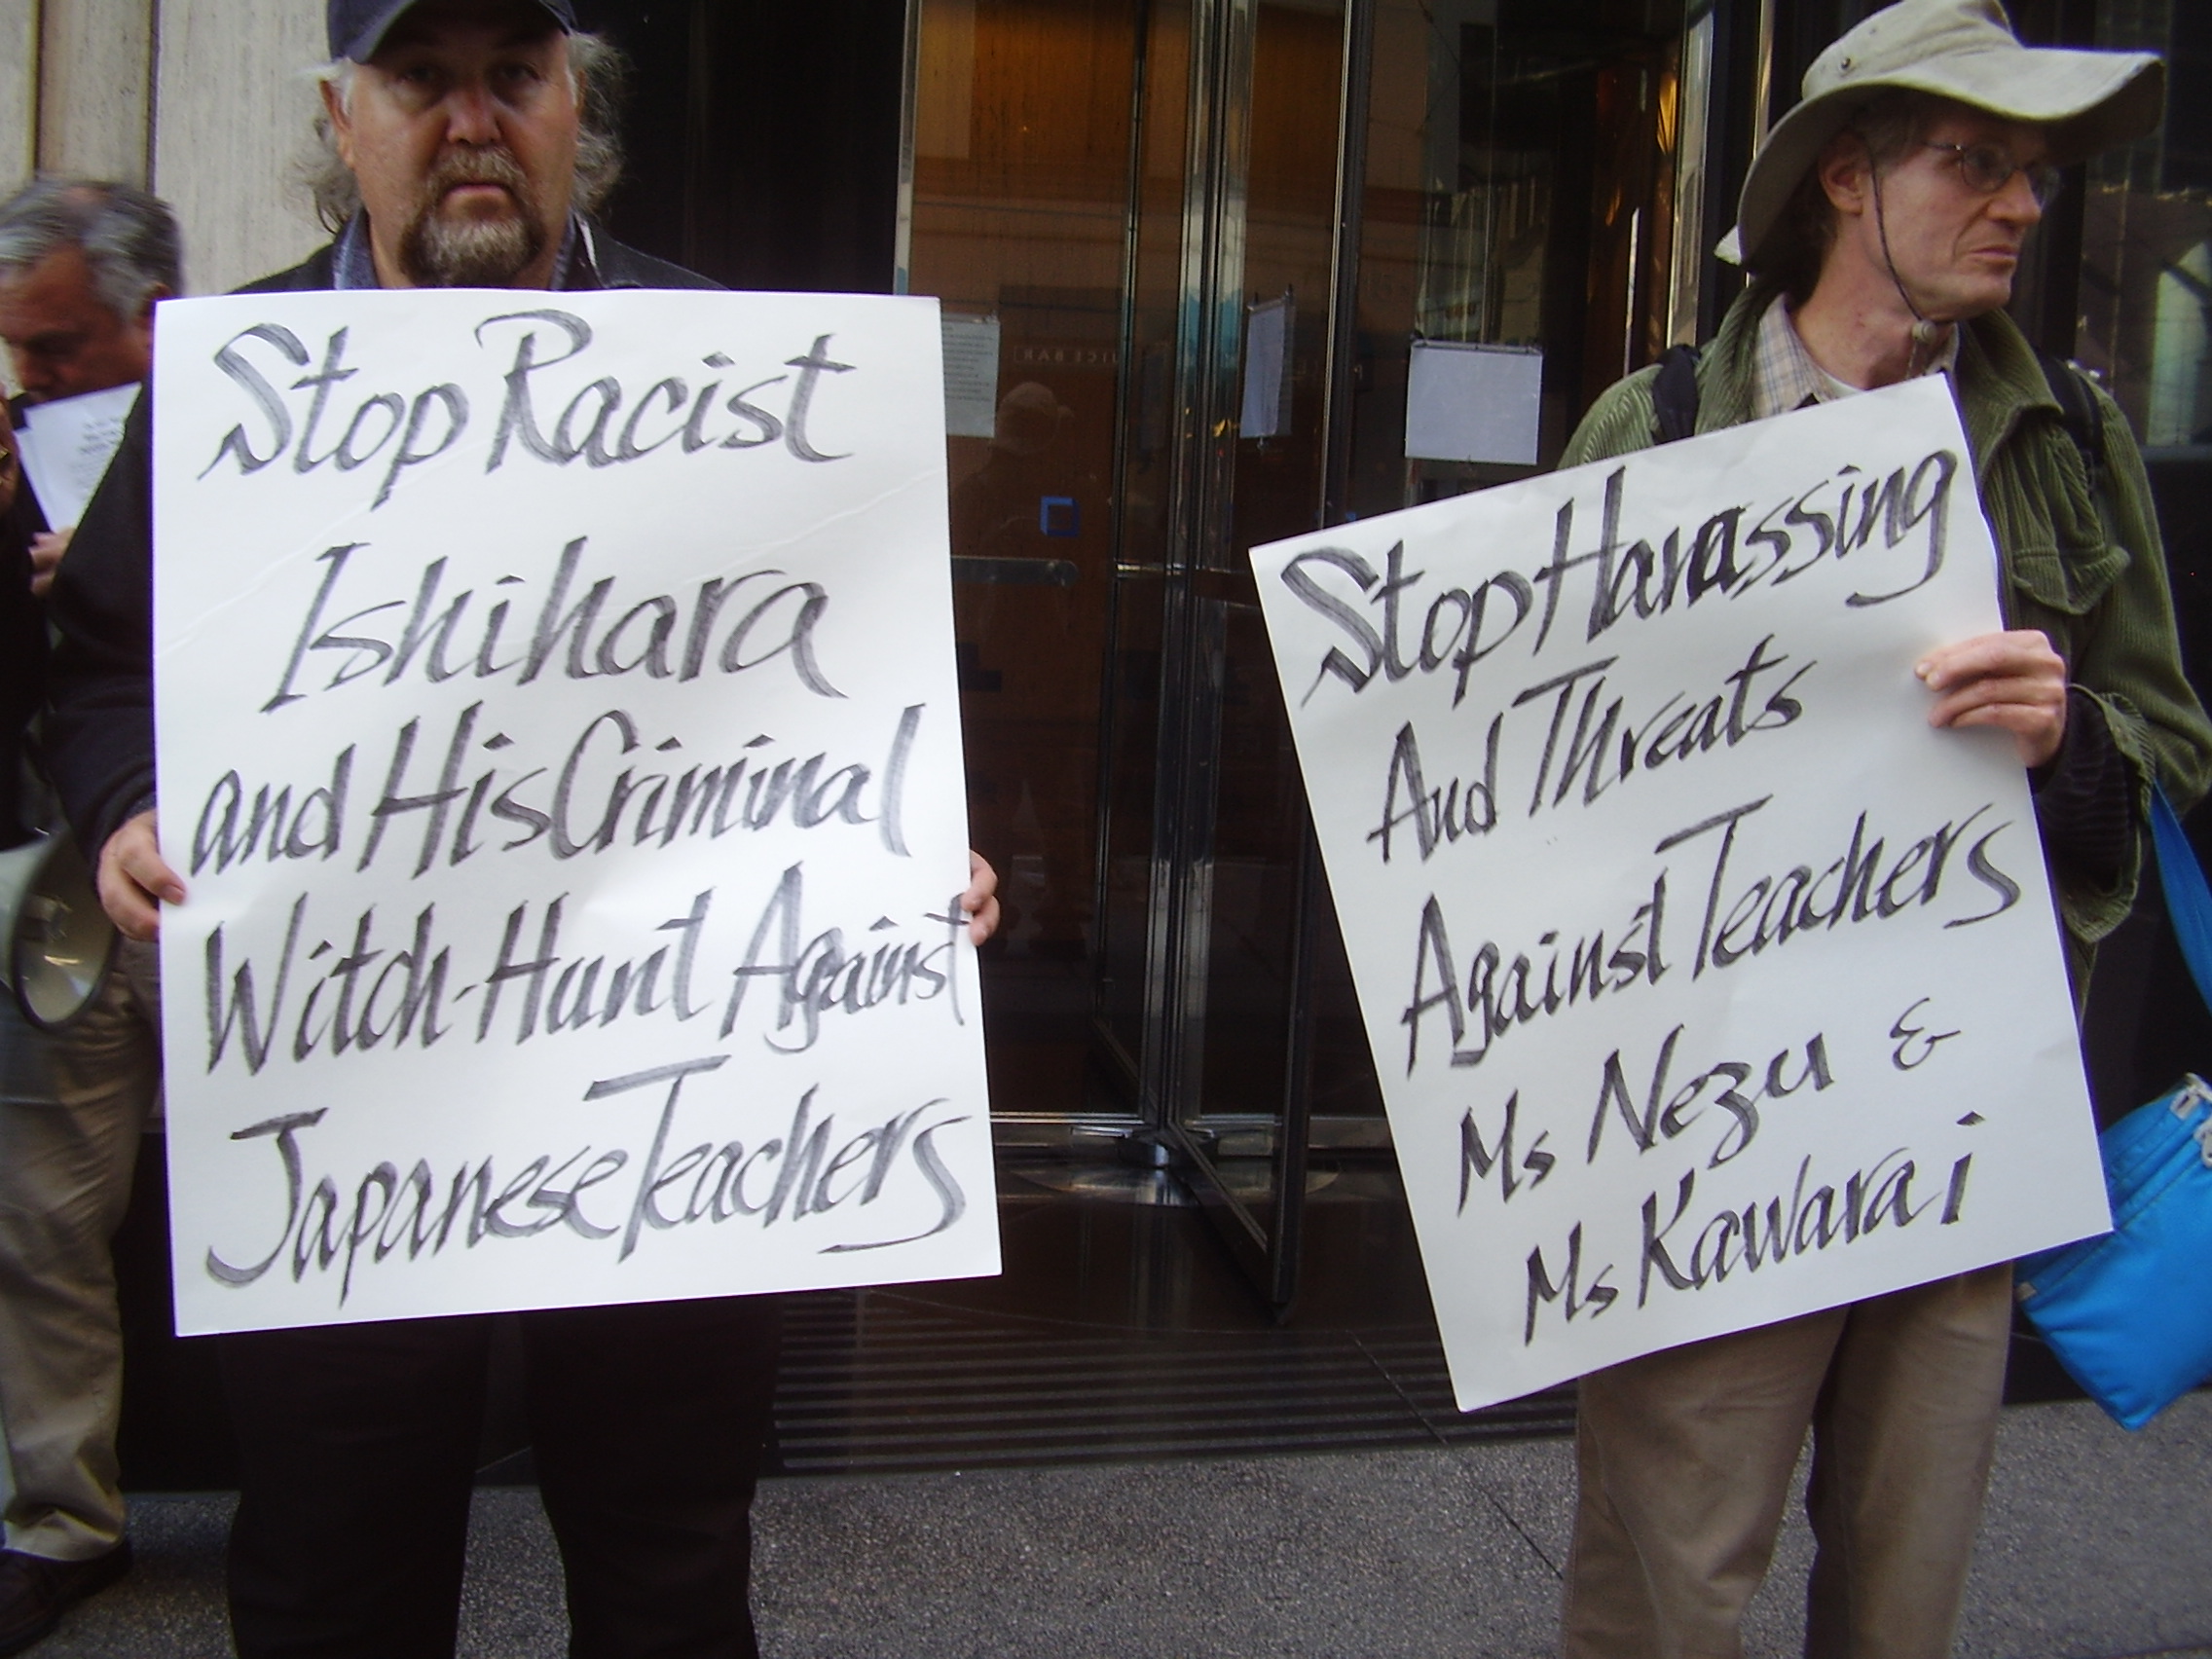 Stop Racist
Ishihara
and His Criminal
Witch-Hunt Against
Japanese Teachers
Stop Harassing
And Threats
Against Teachers
Ms Nezu &
Ms Kawarai